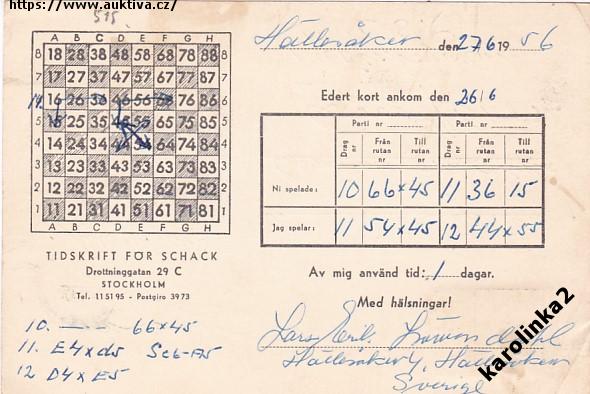 https://www.auktiva.cz/
515
Hällesåker den 27 6 19 56
A B C D E F G H
8 18 28 38 48 58 68 78 88 8
7 17 27 37 47 57 67 77 87 7
6 16 26 36 46 56 66 76 86 6
5 15 25 35 45 55 65 75 85 5
4 14 24 34 44 54 64 74 84 4
3 13 23 33 43 53 63 73 83 3
2 12 22 32 42 52 62 72 82 2
1 11 21 31 41 51 61 71 81 1
A B C D E F G H
Edert kort ankom den 26/6
Parti nr Parti nr
Drag nr Från rutan nr Till rutan nr Drag nr Från rutan nr Till rutan nr
Ni spelade: 10 66 x 45 11 36 15
Jag spelar: 11 54 x 45 12 44 x 55
TIDSKRIFT FÖR SCHACK
Drottninggatan 29 C
STOCKHOLM
Tel. 11 51 95 - Postgiro 39 73
Av mig använd tid: 1 dagar.
Med hälsningar!
10. — 66x45
11. E4xd5 Sc6-A5
12 D4xE5
Lars Erik
Hällesåker 4, Hällesåker
Sverige
karolinka2